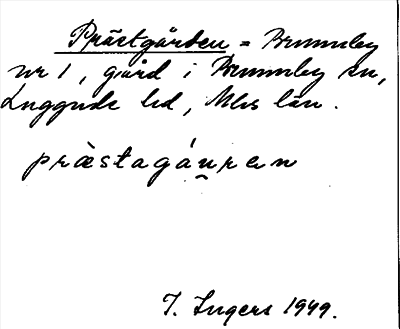 Prästgården = Brunnby
nr 1, gård i Brunnby sn,
Luggude hd, Mlhs län.
præ̀stagáu̯ren
I. Ingers 1949.